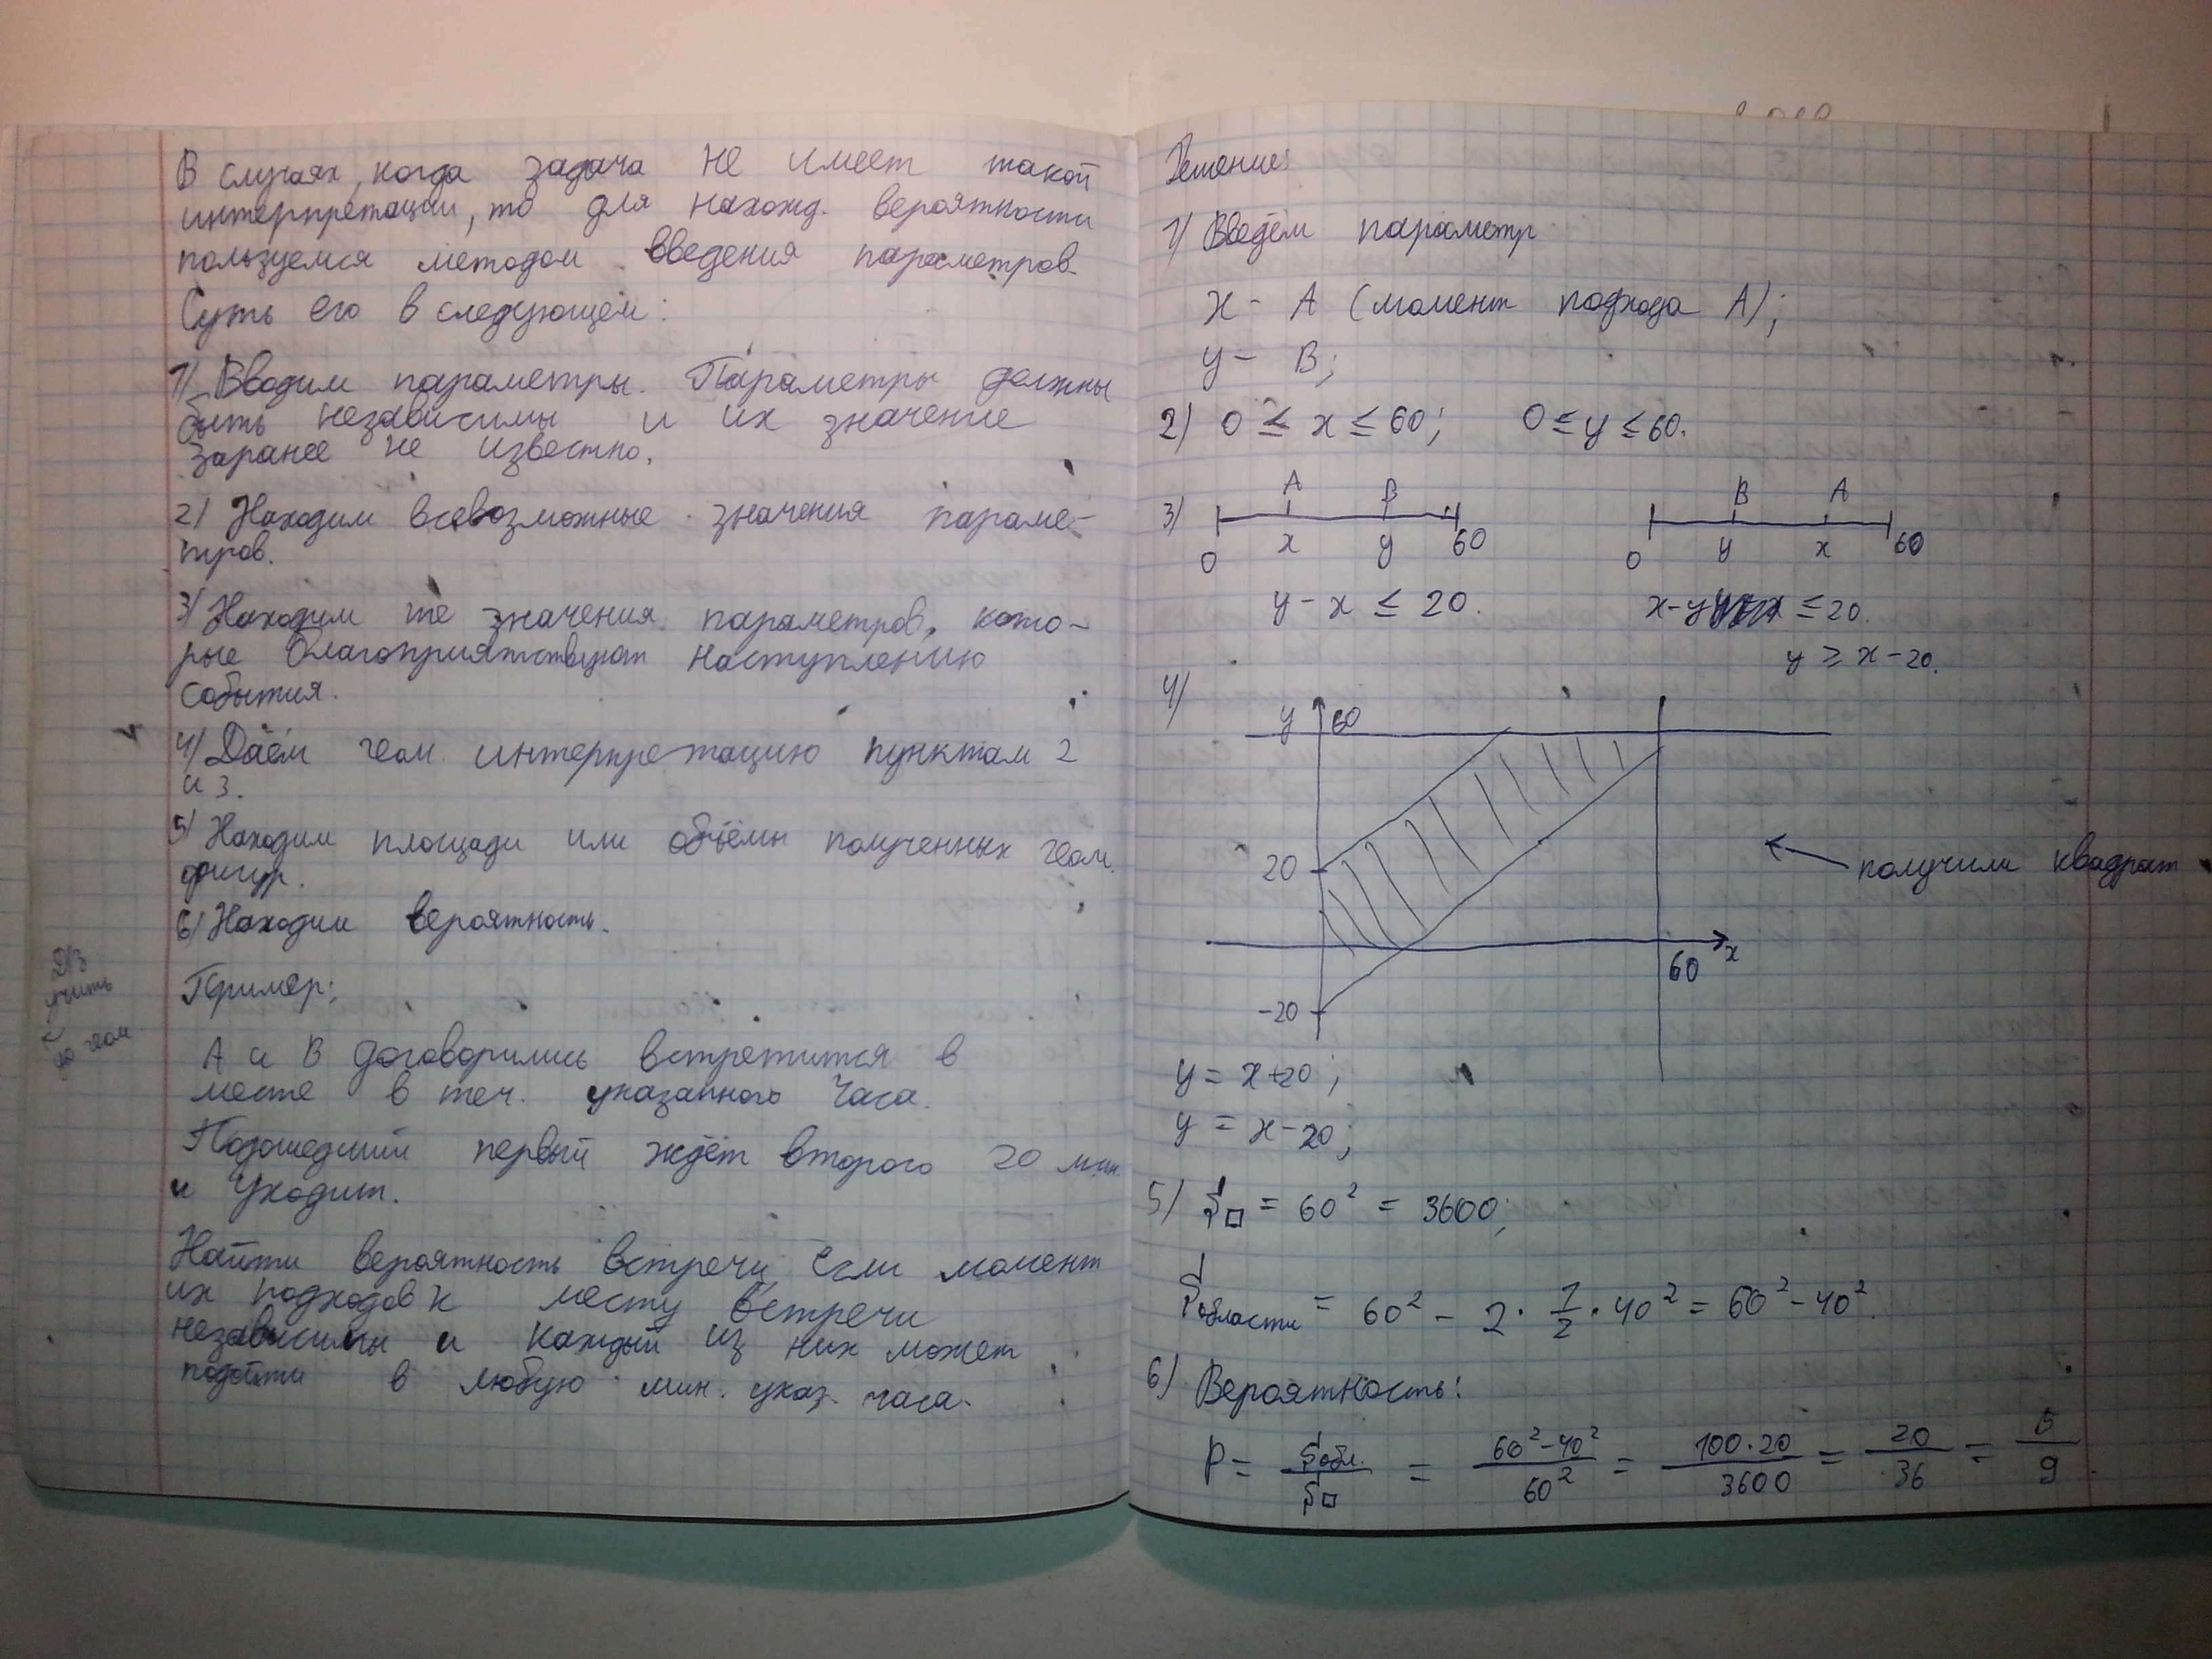 В случаях, когда задача не имеет такой
интерпретации, то для нахожд. вероятности
пользуемся методом введения параметров.
Суть его в следующем:
1) Вводим параметры. Параметры должны
быть независимы и их значение
заранее не известно.
2) Находим всевозможные значения параме-
тров.
3) Находим те значения параметров, кото-
рые благоприятствуют наступлению
события.
4) Даём геом. интерпретацию пунктам 2
и 3.
5) Находим площади или объёмы полученных геом.
фигур.
6) Находим вероятность.
Пример:
А и В договорились встретится в
месте в теч. указанного часа.
Подошедший первый ждёт второго 20 мин.
и уходит.
Найти вероятность встречи, если момент
их подходов к месту встречи
независимы и каждый из них может
подойти в любую мин. указ. часа.
ДЗ
учить
геом.
Решение:
1) Введём параметр
x - А (момент подхода А);
y - В;
2) 0 ≤ x ≤ 60; 0 ≤ y ≤ 60.
3) A B B A
0 x y 60 0 y x 60
y - x ≤ 20. x - y ≤ 20.
y ≥ x - 20.
4)
y 60
20
получили квадрат
60 x
-20
y = x+20;
y = x-20;
5) S□ = 60² = 3600;
Sобласти = 60² - 2 · 1/2 · 40² = 60² - 40².
6) Вероятность:
P = Sобл./S□ = (60² - 40²)/60² = (100·20)/3600 = 20/36 = 5/9.